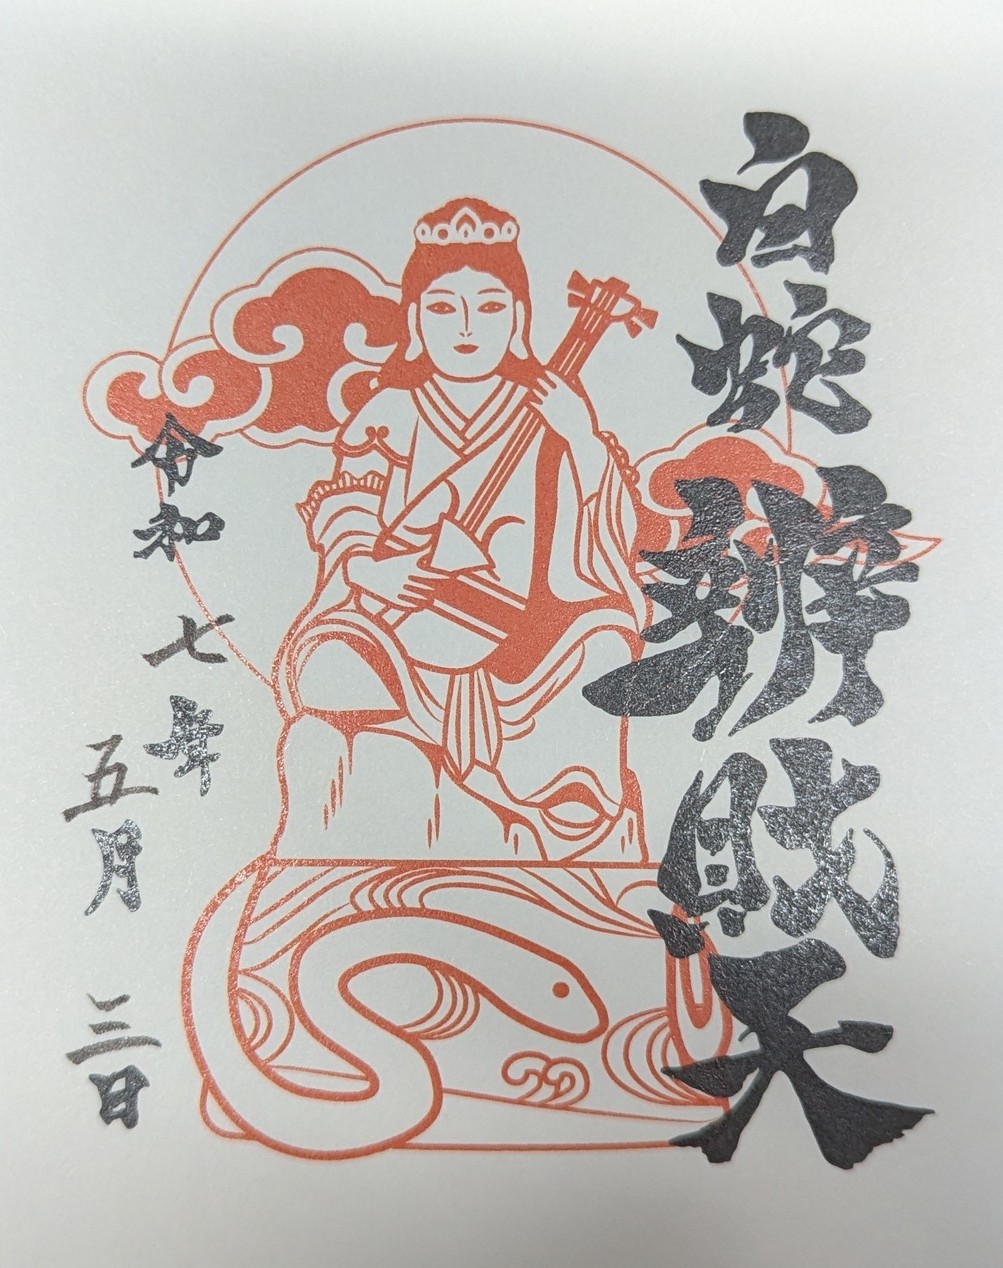 白蛇辨財天
令和七年
五月三日